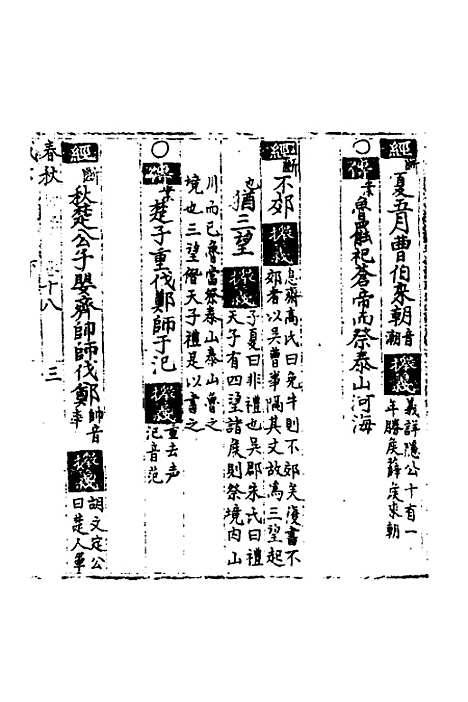 經斷 夏五月曹伯來朝
音
潮
義詳隱公十有一
年滕侯薛侯來朝
○傳 魯能祀蒼帝而祭泰山河海
經斷 不郊
息齋高氏曰免牛則不郊矣復書不
郊者以吳曹事隔其文故為三望起
也
猶三望
子夏曰非禮也吳郡朱氏曰禮
天子有四望諸侯則祭境内山
川而已魯當祭泰山泰山魯之
境也三望僭天子禮是以書之
○傳 楚子重伐鄭師于氾
重去声
氾音范
經斷 秋楚公子嬰齊帥師伐鄭
帥音
率
胡文定公
曰楚人軍
春秋 十八 三